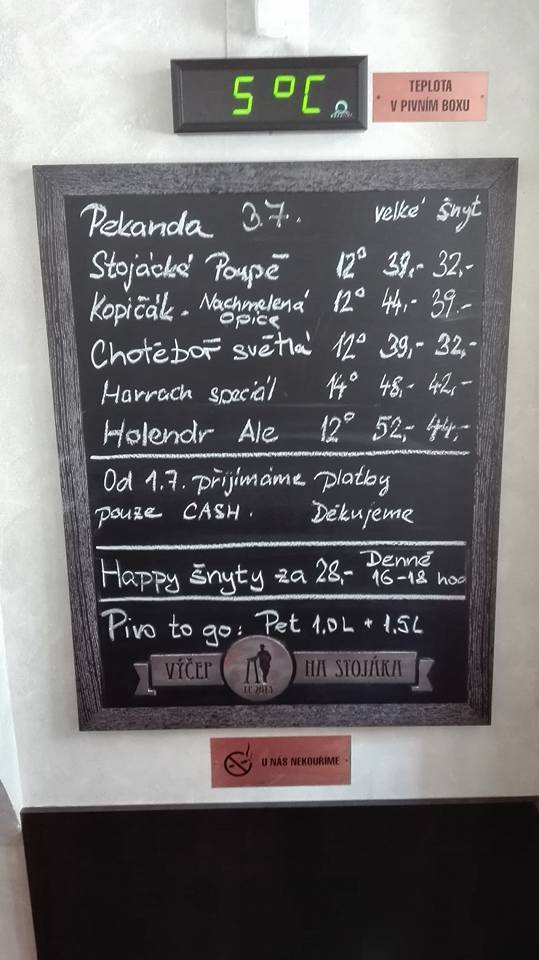 5 °C
TEPLOTA
V PIVNÍM BOXU
Pekanda 3.7. velké šnyt
Stojácké Poupě 12° 39,- 32,-
Kopičák - Nachmelená Opice 12° 44,- 39,-
Chotěboř světlá 12° 39,- 32,-
Harrach speciál 14° 48,- 42,-
Holendr Ale 12° 52,- 44,-
Od 1.7. přijímáme platby
pouze CASH. Děkujeme
Happy šnyty za 28,- Denně 16-18 hod
Pivo to go: Pet 1.0L + 1.5L
VÝČEP NA STOJÁKA
EC 2013
U NÁS NEKOUŘÍME